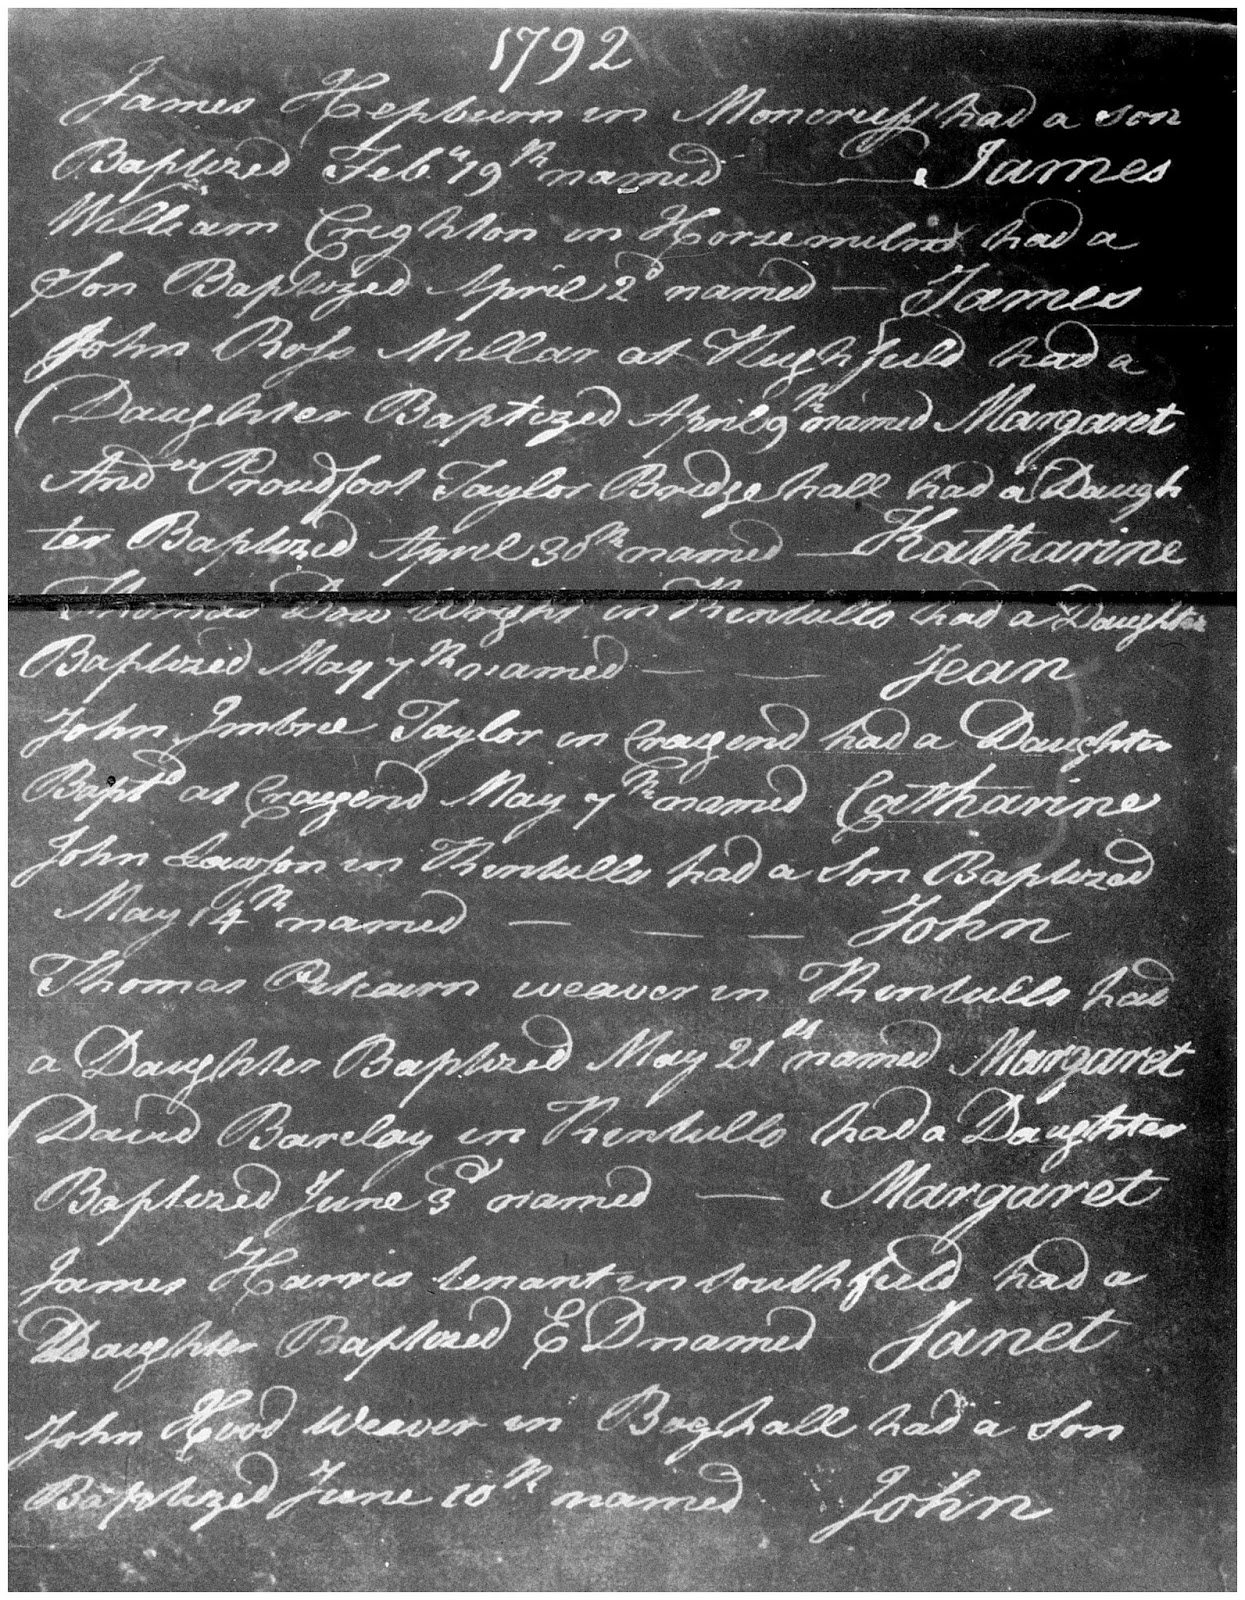 1792
James Hepburn in Moncruff had a son
Baptized Feb.ry 19th named — — James
William Crighton in Horsemilns had a
Son Baptized April 2d named — James
John Ross Millar at Hughfield had a
Daughter Baptized April 9th named Margaret
Andw Proudfoot Taylor Bridgehall had a Daugh
ter Baptized April 30th named — Katharine
Thomas Dow Wright in Kintullo had a Daughter
Baptized May 7th named — — Jean
John Imbrie Taylor in Craigend had a Daughter
Baptd at Craigend May 7th named Catharine
John Lawson in Kintullo had a Son Baptized
May 14th named — — — John
Thomas Pitcairn weaver in Kintullo had
a Daughter Baptized May 21st named Margaret
David Barclay in Kintullo had a Daughter
Baptized June 3d named — Margaret
James Harris tenant in Southfield had a
Daughter Baptized E D named Janet
John Hood Weaver in Boghall had a Son
Baptized June 10th named John